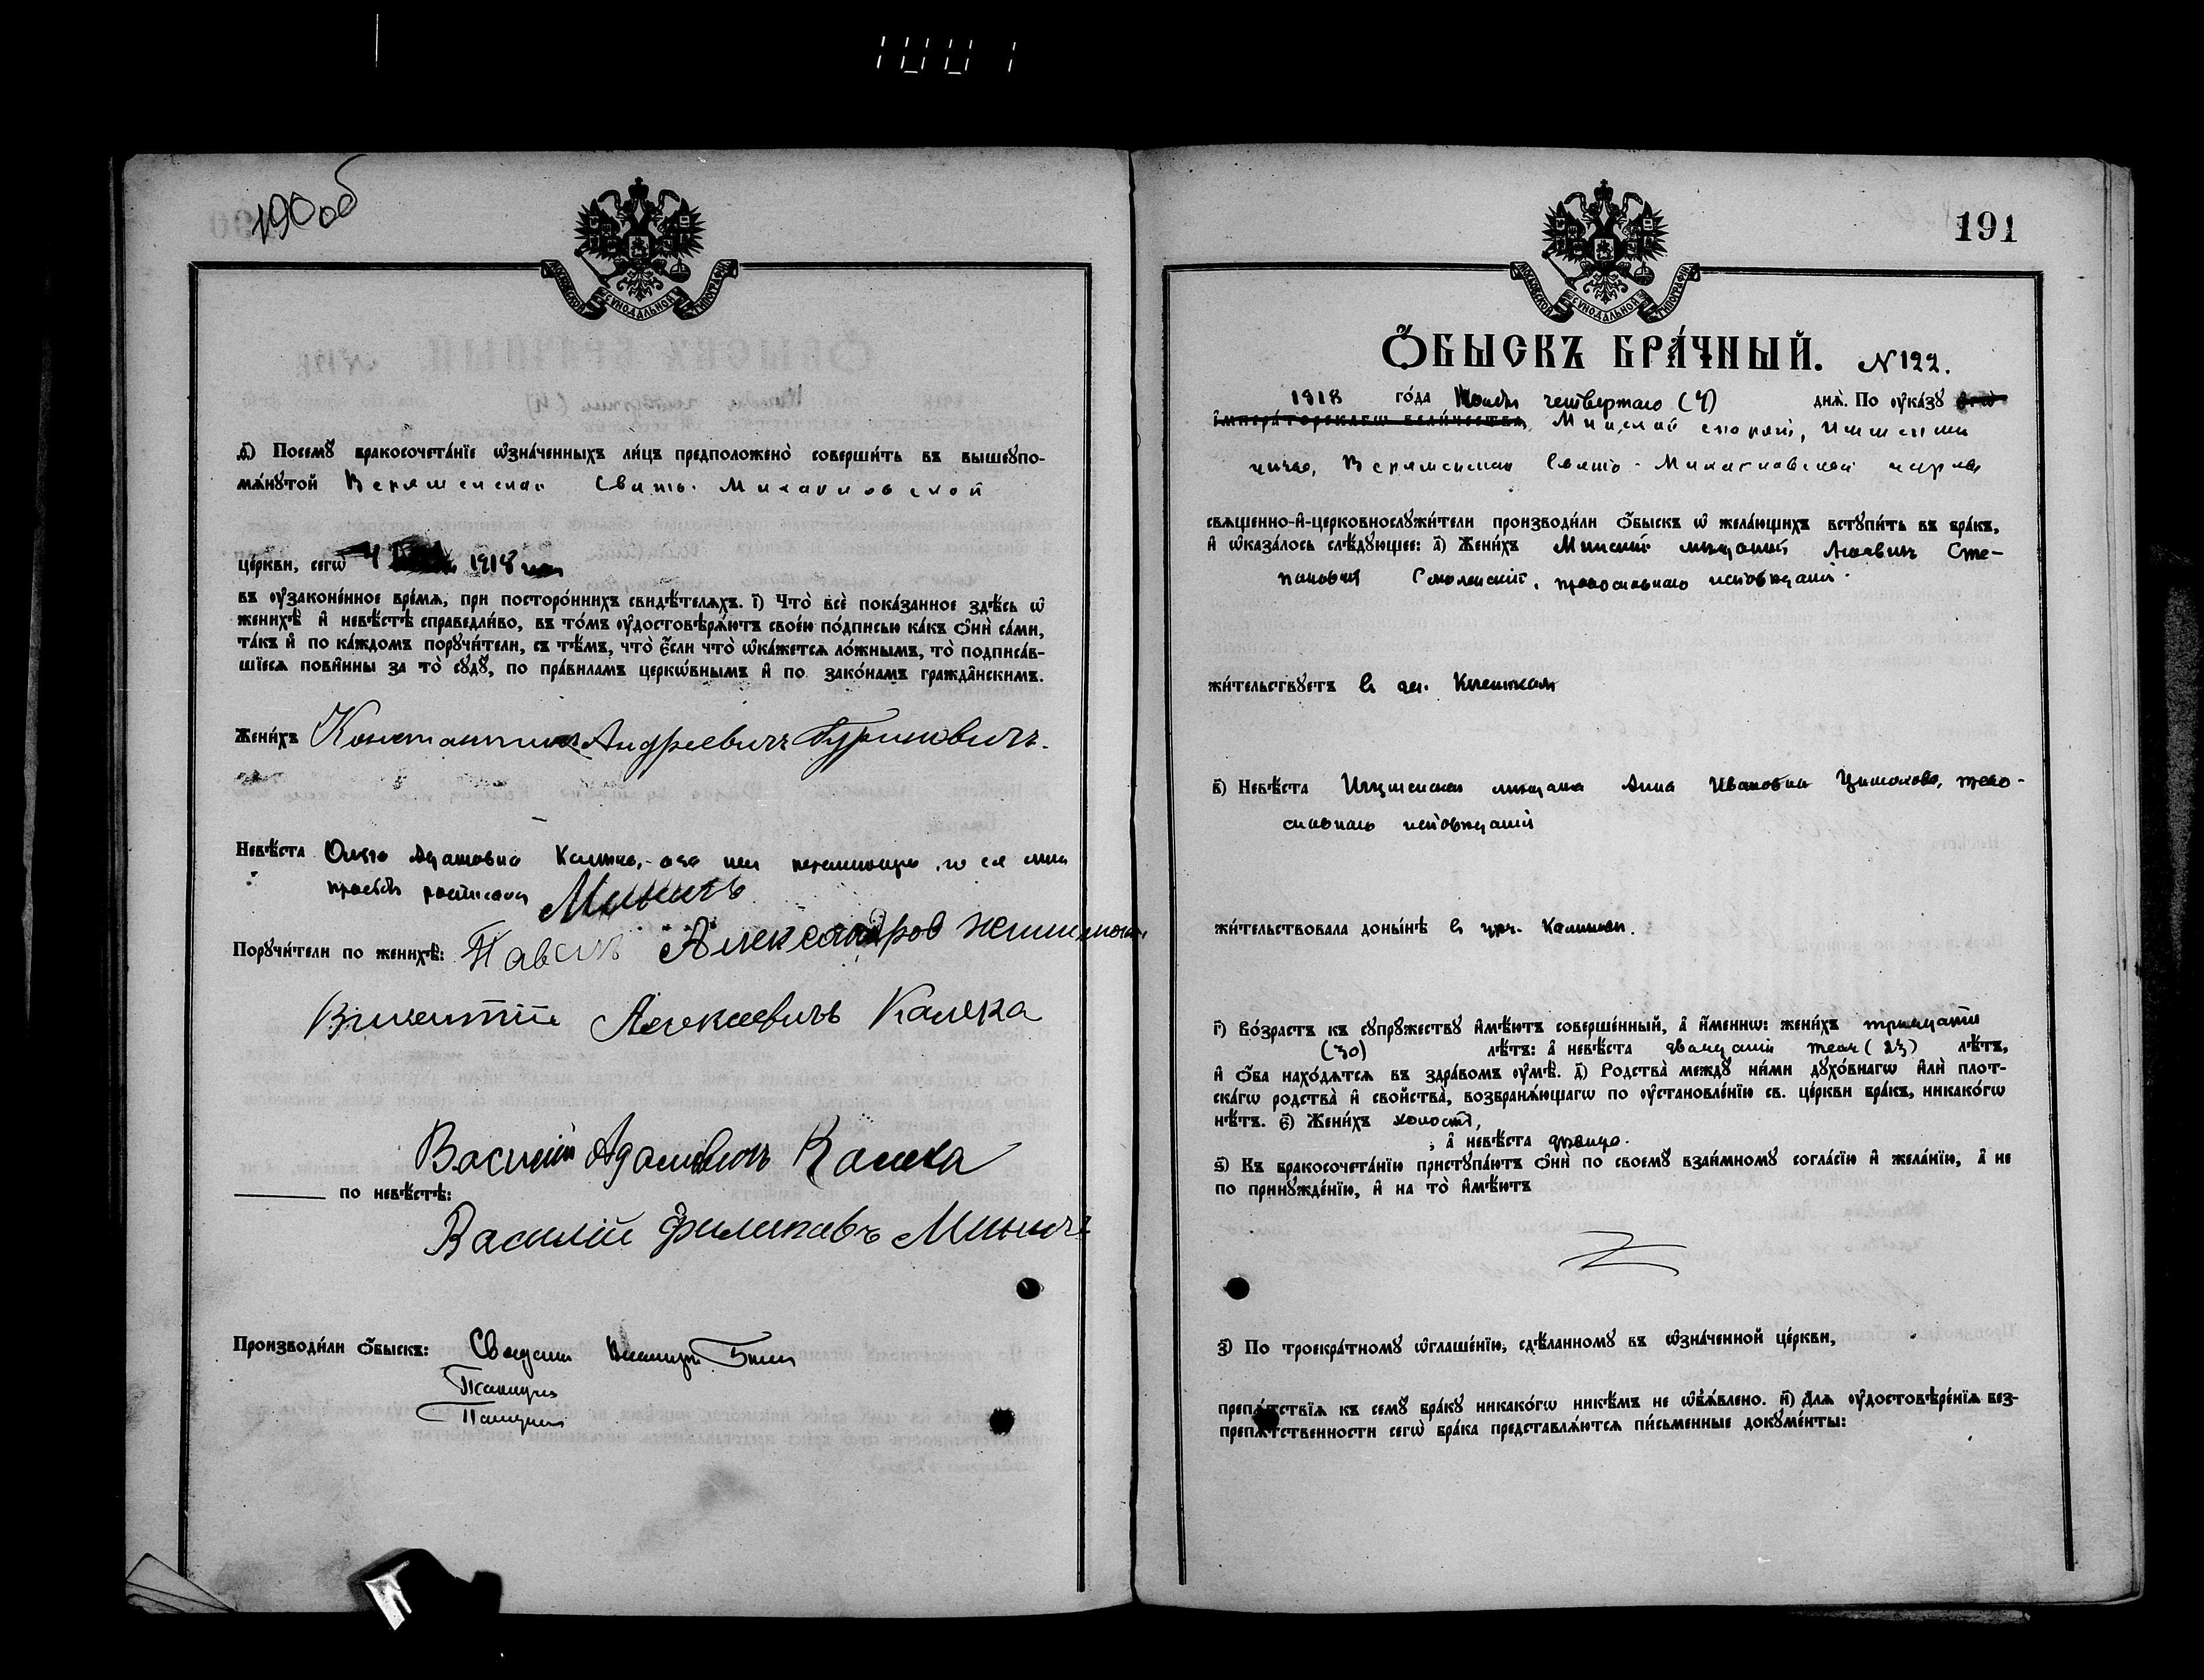 190об
МОСКОВСКОЙ СѴНОДАЛЬНОЙ ТИПОГРАФІИ
д҃) Посемꙋ бракосочета́нїе ѡ҆зна́ченныхъ ли́цъ предположено̀ соверши́ть въ вышеꙋпо-
мѧ́нꙋтой Веряженской Свято-Михайловской
це́ркви, сегѡ̀ 4 1918
въ ᲂу҆зако́нённое вре́мѧ, при посторо́ннихъ свидѣ́телѧхъ. і҃) Что̀ всѐ пока́занное здѣ́сь ѡ҆
женихѣ̀ и҆ невѣ́стѣ справедли́во, въ то́мъ ᲂу҆достовѣрѧ́ютъ свое́ю по́дписью ка́къ ѻ҆нѝ са́ми,
та́къ и҆ по ка́ждомъ порꙋчи́тели, съ тѣ́мъ, что̀ є҆́сли что̀ ѡ҆ка́жетсѧ ло́жнымъ, то̀ подписа́в-
шїесѧ пови́нны за то̀ сꙋдꙋ̀, по пра́виламъ церко́внымъ и҆ по зако́намъ гражда́нскимъ.
Жени́хъ Константинъ Андреевичъ Гуриновичъ.
Невѣ́ста Ольга Адамовна Калека, а за нея неграмотную, по ея личной
просьбѣ росписался Миничъ
Порꙋчи́тели по женихѣ̀: Павелъ Александров
Викентій Алексеевичъ Калека
Василій Адамовичъ Калека
по невѣ́стѣ:
Василій Филиповъ Миничъ
Производи́ли ѻ҆́быскъ: Священникъ
Псаломщикъ
Псаломщикъ
191
МОСКОВСКОЙ СѴНОДАЛЬНОЙ ТИПОГРАФІИ
Ѻ҆БЫСКЪ БРА́ЧНЫЙ. № 122.
1918 го́да Ноября четвертаго (4) днѧ̀. По ᲂу҆ка́зꙋ є҆гѡ̀
і҆мпера́торскагѡ вели́чества, Минской епархіи, Игуменск.
уѣзда, Веряженской Свято-Михайловской церкви
свѧще́нно-и҆-церковнослꙋжи́тели производи́ли ѻ҆́быскъ ѡ҆ жела́ющихъ встꙋпи́ть въ бра́къ,
и҆ ѡ҆каза́лось слѣ́дꙋющее: а҃) Жени́хъ Минскій мѣщанинъ Сте-
пановичъ Смоленскій, православнаго исповѣданія.
жи́тельствꙋетъ въ
в҃) Невѣ́ста Игуменская мѣщанка Анна Ивановна право-
славнаго исповѣданія
жи́тельствовала донынѣ̀ въ
г҃) Во́зрастъ къ сꙋпрꙋ́жествꙋ и҆мѣ́ютъ соверше́нный, а҆ и҆́менно: жени́хъ тридцати
(30) лѣ́тъ: а҆ невѣ́ста двадцати трехъ (23) лѣ́тъ,
и҆ ѻ҆́ба нахо́дѧтсѧ въ здра́вомъ ᲂу҆мѣ̀. д҃) Родства̀ междꙋ̀ ни́ми дꙋхо́внагѡ и҆лѝ плот-
ска́гѡ родства̀ и҆ сво́йства̀, возбранѧ́ющагѡ по ᲂу҆становле́нїю св. це́ркви бра́къ, никако́гѡ
нѣ́тъ. є҃) Жени́хъ холостъ,
; а҆ невѣ́ста дѣвица.
ѕ҃) Къ бракосочета́нїю пристꙋпа́ютъ ѻ҆нѝ по своемꙋ̀ взаи́мномꙋ согла́сїю и҆ жела́нїю, а҆ не
по принꙋжде́нїю, и҆ на то̀ и҆мѣ́ютъ
з҃) По троекра́тномꙋ ѡ҆глаше́нїю, сдѣ́ланномꙋ въ ѡ҆зна́ченной це́ркви,
препѧ́тствїѧ къ семꙋ̀ бра́кꙋ никако́гѡ никѣ́мъ не ѡ҆бъѧ́влено. и҃) Длѧ ᲂу҆достовѣре́нїѧ без-
препѧ́тственности сегѡ̀ бра́ка представлѧ́ютсѧ пи́сьменные докꙋме́нты: